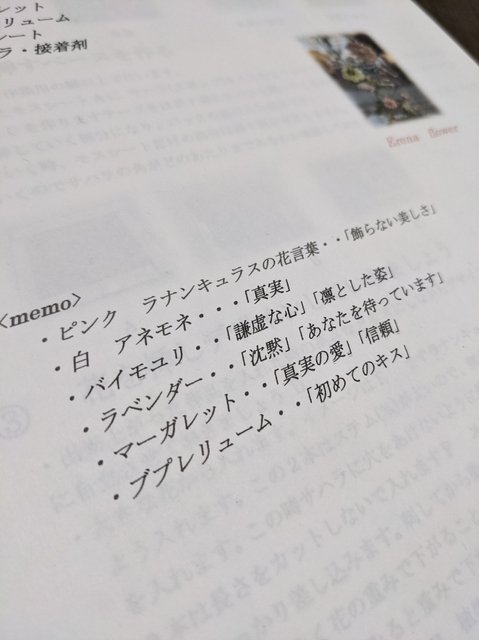 レット
リューム
シート
ラ・接着剤
Erena flower
<memo>
・ピンク ラナンキュラスの花言葉・・「飾らない美しさ」
・白 アネモネ・・・「真実」
・バイモユリ・・「謙虚な心」「凛とした姿」
・ラベンダー・・「沈黙」「あなたを待っています」
・マーガレット・・「真実の愛」「信頼」
・ブプレリューム・・「初めてのキス」